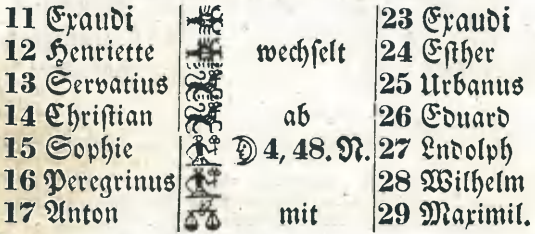 11 Exaudi 23 Exaudi
12 Henriette wechſelt 24 Eſther
13 Servatius 25 Urbanus
14 Chriſtian ab 26 Eduard
15 Sophie ☽ 4, 48. N. 27 Ludolph
16 Peregrinus 28 Wilhelm
17 Anton mit 29 Maximil.